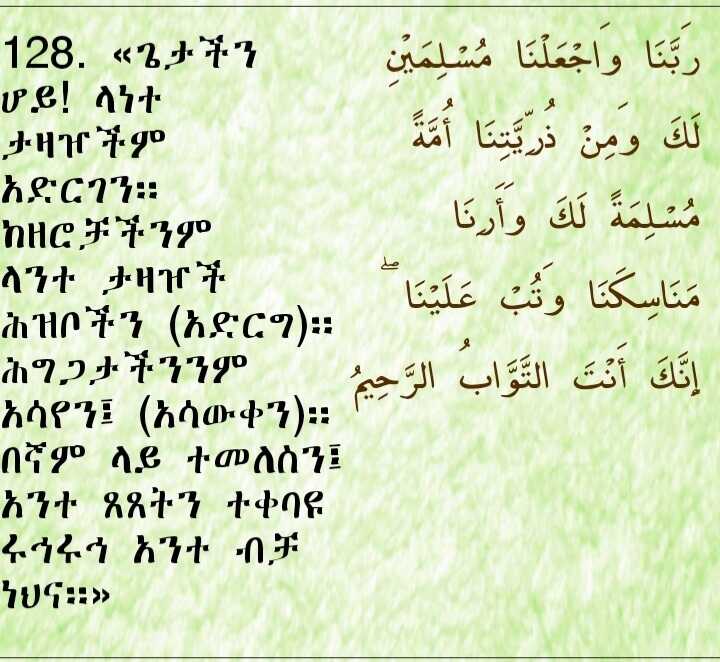 128. «ጌታችን
ሆይ! ላነተ
ታዛዦችም
አድርገን፡፡
ከዘሮቻችንም
ላንተ ታዛዦች
ሕዝቦችን (አድርግ)፡፡
ሕግጋታችንንም
አሳየን፤ (አሳውቀን)፡፡
በኛም ላይ ተመለሰን፤
አንተ ጸጸትን ተቀባዩ
ሩኅሩኅ አንተ ብቻ
ነህና፡፡»
رَبَّنَا وَاجْعَلْنَا مُسْلِمَيْنِ
لَكَ وَمِنْ ذُرِّيَّتِنَا أُمَّةً
مُسْلِمَةً لَكَ وَأَرِنَا
مَنَاسِكَنَا وَتُبْ عَلَيْنَا ۖ
إِنَّكَ أَنْتَ التَّوَّابُ الرَّحِيمُ